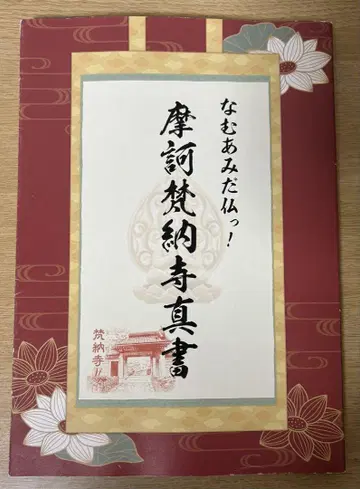 なむあみだ仏っ!
摩訶梵納寺真書
梵納寺